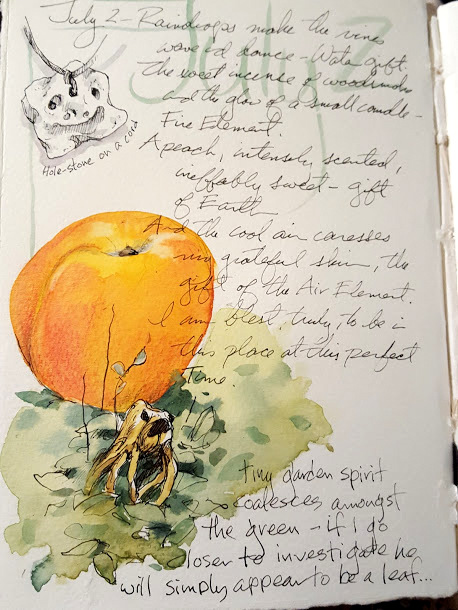 July 2
July 2 - Raindrops make the vines
wave and dance - Water gift.
The sweet incense of woodsmoke
and the glow of a small candle -
Fire Element.
Hole-stone on a cord
A peach, intensely scented,
ineffably sweet - gift
of Earth
And the cool air caresses
my grateful skin, the
gift of the Air Element.
I am blest, truly, to be in
this place at this perfect
Time.
tiny garden spirit
coalesces amongst
the green - if I go
closer to investigate he
will simply appear to be a leaf...